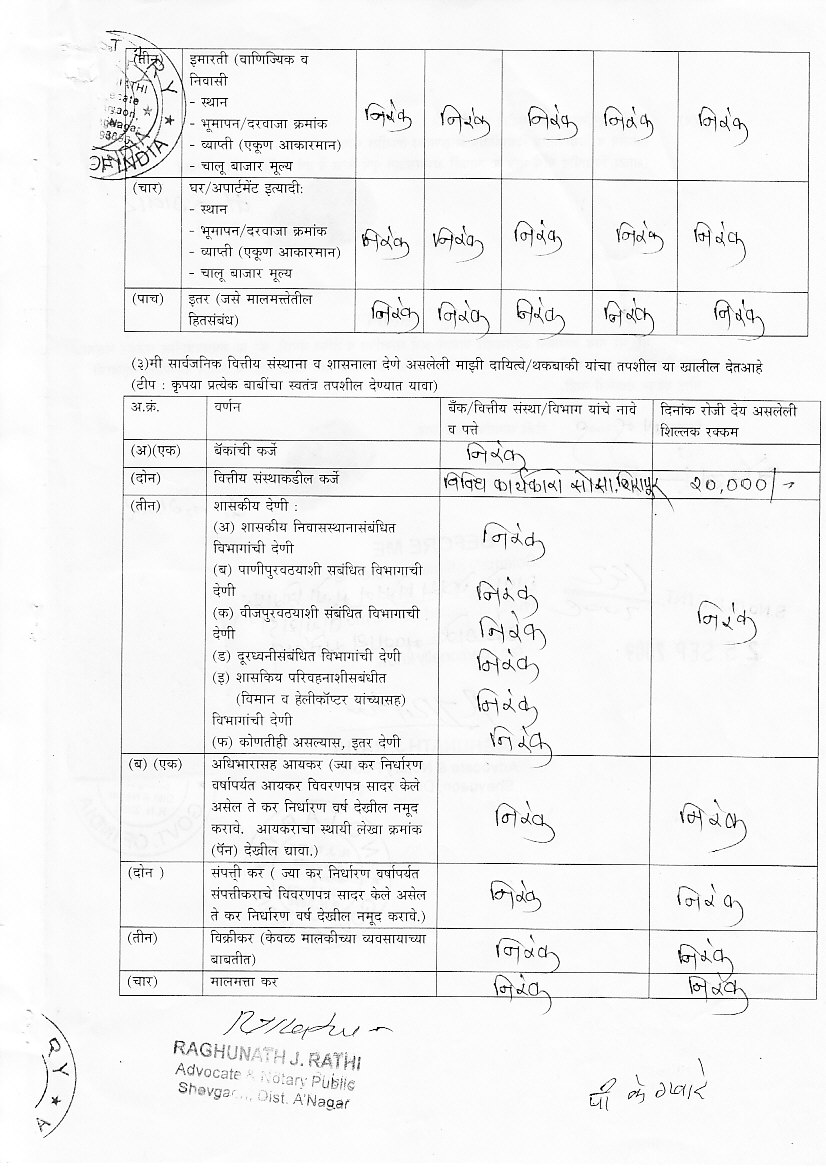 (तीन) इमारती (वाणिज्यिक व
निवासी
- स्थान
- भूमापन/दरवाजा क्रमांक
- व्याप्ती (एकूण आकारमान)
- चालू बाजार मूल्य
निरंक निरंक निरंक निरंक निरंक
(चार) घर/अपार्टमेंट इत्यादी:
- स्थान
- भूमापन/दरवाजा क्रमांक
- व्याप्ती (एकूण आकारमान)
- चालू बाजार मूल्य
निरंक निरंक निरंक निरंक निरंक
(पाच) इतर (जसे मालमत्तेतील
हितसंबंध)
निरंक निरंक निरंक निरंक निरंक
(३)मी सार्वजनिक वित्तीय संस्थाना व शासनाला देणे असलेली माझी दायित्वे/थकबाकी यांचा तपशील या खालील देतआहे
(टीप : कृपया प्रत्येक बाबींचा स्वतंत्र तपशील देण्यात यावा)
अ.क्रं. वर्णन बँक/वित्तीय संस्था/विभाग यांचे नावे दिनांक रोजी देय असलेली
व पत्ते शिल्लक रक्कम
(अ)(एक) बॅकांची कर्जे निरंक
(दोन) वित्तीय संस्थाकडील कर्जे विविध कार्यकारी सोसा. २०,000/-
(तीन) शासकीय देणी :
(अ) शासकीय निवासस्थानासंबंधित निरंक
विभागांची देणी
(ब) पाणीपुरवठयाशी सबंधित विभागाची
देणी निरंक
(क) वीजपुरवठयाशी संबंधित विभागाची निरंक निरंक
देणी
(ड) दूरध्वनीसंबंधित विभागांची देणी निरंक
(इ) शासकिय परिवहनाशीसबंधीत
(विमान व हेलीकॉप्टर यांच्यासह) निरंक
विभागांची देणी
(फ) कोणतीही असल्यास, इतर देणी निरंक
(ब) (एक) अधिभारासह आयकर (ज्या कर निर्धारण
वर्षापर्यत आयकर विवरणपत्र सादर केले
असेल ते कर निर्धारण वर्ष देखील नमूद निरंक निरंक
करावे. आयकराचा स्थायी लेखा क्रमांक
(पॅन) देखील द्यावा.)
(दोन ) संपत्ती कर ( ज्या कर निर्धारण वर्षापर्यत
संपत्तीकराचे विवरणपत्र सादर केले असेल निरंक निरंक
ते कर निर्धारण वर्ष देखील नमूद करावे.)
(तीन) विक्रीकर (केवळ मालकीच्या व्यवसायाच्या निरंक निरंक
बाबतीत)
(चार) मालमत्ता कर निरंक निरंक
RAGHUNATH J. RATHI
Advocate & Notary Public
Dist. A'Nagar